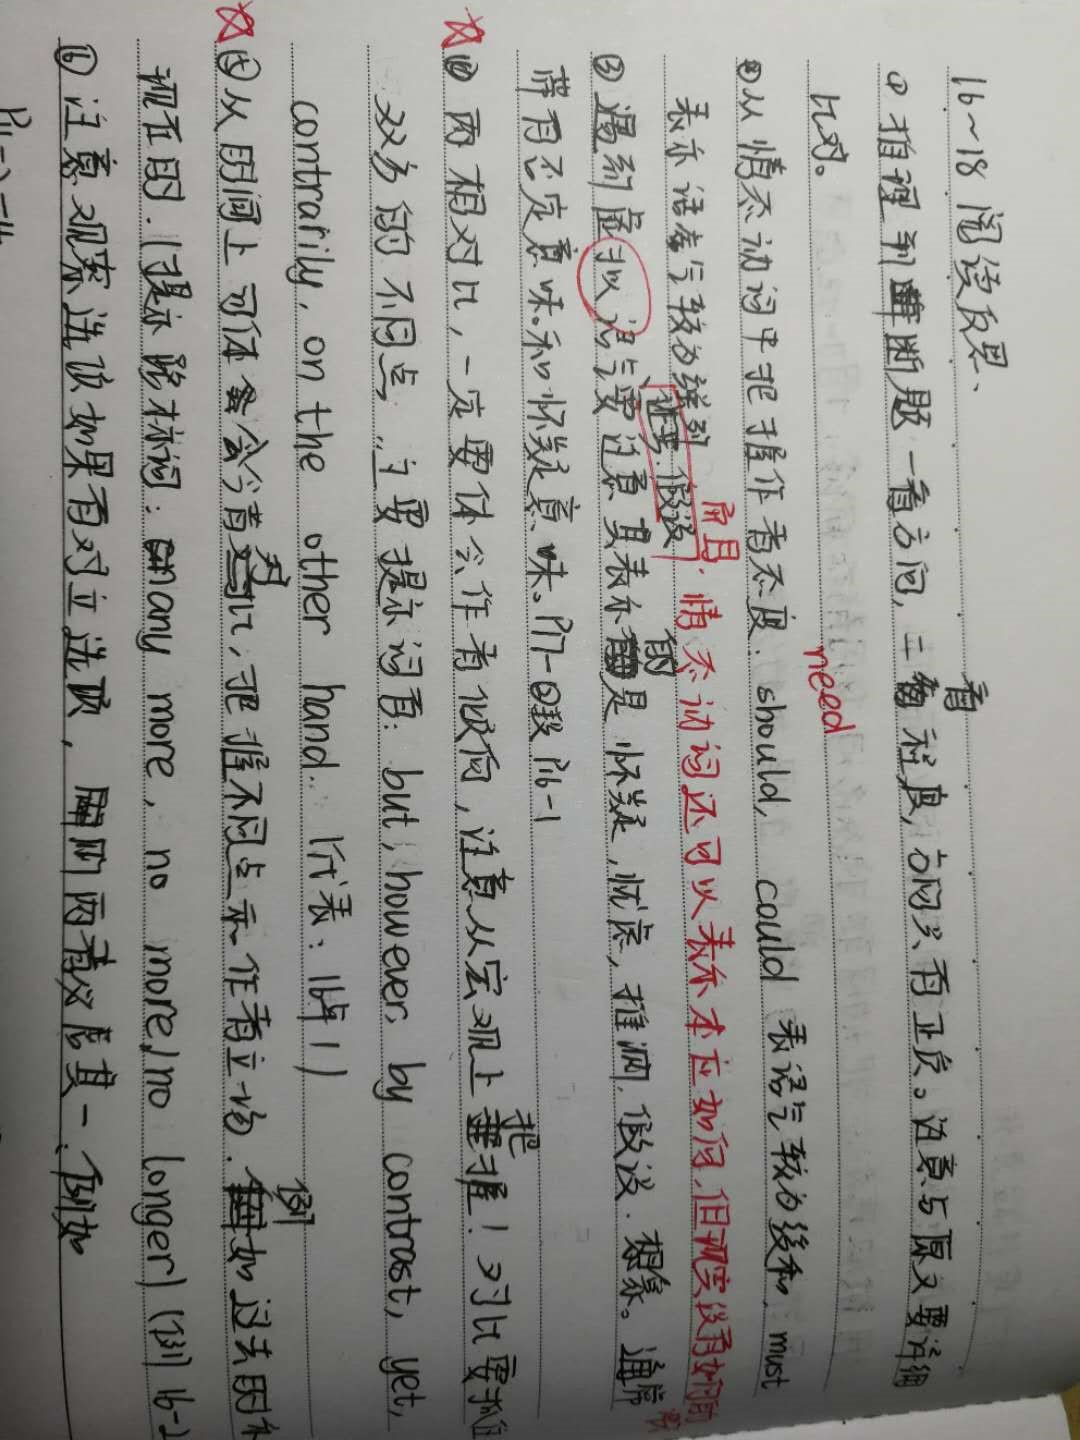 16~18 阅读反思、
看
① 推理判断题 一看方向, 二 程度, 方向只有正负。注意与原文要详细
比对。
need
②从情态动词中把握作者态度. should, could 表语气较为缓和, must
表示语气较为强烈
而且. 情态动词还可以表示本应如何,但现实没有如何的
让步. 假设
的
③ 遇到虚拟语气要注意其表示 是 怀疑, 忧虑, 推测, 假设. 想象。通常
带有否定意味。和怀疑意味。P17-②段 P16-1
把
☆④ 两相对比, 一定要体会作者倾向, 注意从宏观上 握! 对比要抓住
双方的不同点, 主要提示词有: but, however, by contrast, yet,
contrarily, on the other hand. (代表: 16年1)
对 例
☆⑤从时间上可体会今昔 比, 把握不同点和作者立场. 如过去的和
现在的. (提示路标词: any more, no more, no longer) (例 16-2
⑥ 注意观察选项如果有对立选项, 则两者必居其一, 例如